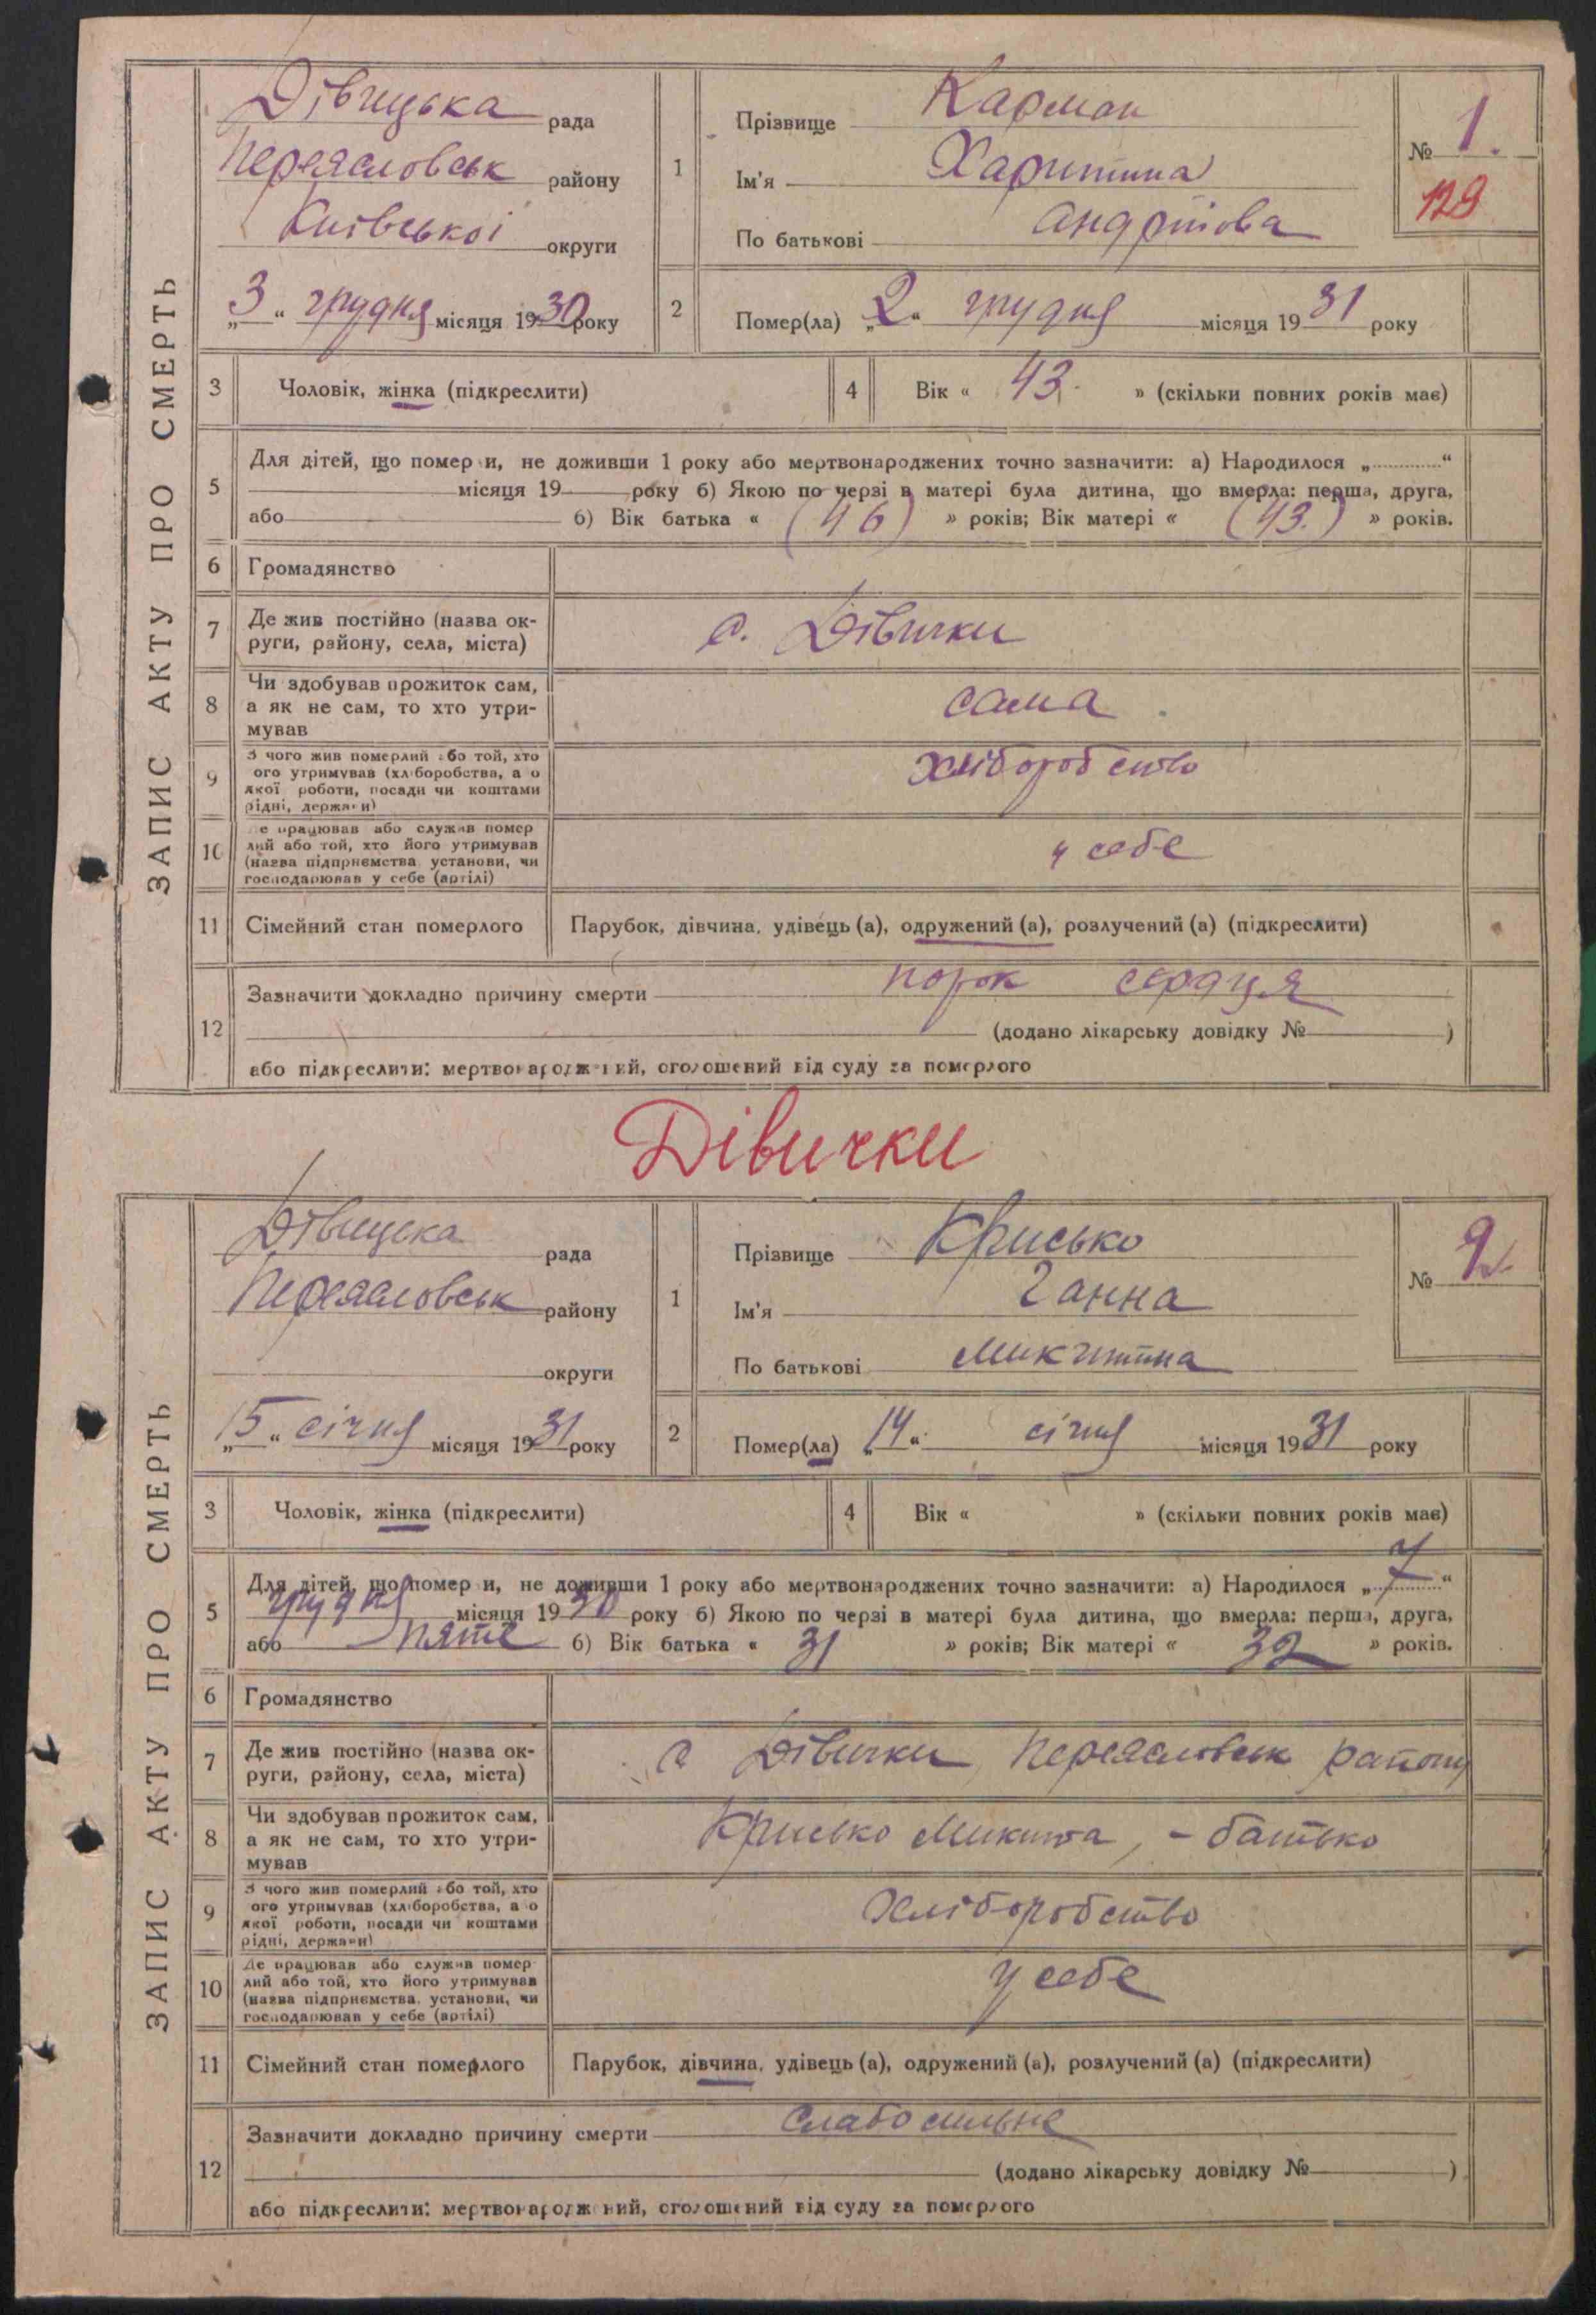 ЗАПИС АКТУ ПРО СМЕРТЬ
Дівицька рада
Переясловськ району
Київської округи
„3“ грудня місяця 1930 року
1
Прізвище Карман
Ім'я Харитина
По батькові Андріїова
№ 1.
129
2
Помер(ла) „2“ грудня місяця 1931 року
3 Чоловік, жінка (підкреслити)
4 Вік « 43. » (скільки повних років має)
5
Для дітей, що помер и, не доживши 1 року або мертвонароджених точно зазначити: а) Народилося „ “
місяця 19 року б) Якою по черзі в матері була дитина, що вмерла: перша, друга,
або б) Вік батька « (46) » років; Вік матері « (43.) » років.
6 Громадянство
7 Де жив постійно (назва ок-
руги, району, села, міста)
с. Дівички
8 Чи здобував прожиток сам,
а як не сам, то хто утри-
мував
сама
9 З чого жив померлий або той, хто
ого утримував (хліборобства, а о
якої роботи, посади чи коштами
рідні, держави)
Хліборобство
10 Де працював або служив помер
лий або той, хто його утримував
(назва підприємства установи, чи
господарював у себе (артілі)
у себе
11 Сімейний стан померлого
Парубок, дівчина, удівець (а), одружений (а), розлучений (а) (підкреслити)
12
Зазначити докладно причину смерти порок сердця
(додано лікарську довідку № )
або підкреслити: мертвонароджений, оголошений від суду за померлого
Дівички
ЗАПИС АКТУ ПРО СМЕРТЬ
Дівицька рада
Переясловськ району
округи
„15“ січня місяця 1931 року
1
Прізвище Крисько
Ім'я Ганна
По батькові Микитина
№ 2
2
Помер(ла) „14“ січня місяця 1931 року
3 Чоловік, жінка (підкреслити)
4 Вік « » (скільки повних років має)
5
Для дітей, що помер и, не доживши 1 року або мертвонароджених точно зазначити: а) Народилося „7“
грудня місяця 1930 року б) Якою по черзі в матері була дитина, що вмерла: перша, друга,
або пяте б) Вік батька « 31 » років; Вік матері « 32 » років.
6 Громадянство
7 Де жив постійно (назва ок-
руги, району, села, міста)
с Дівички, Переясловськ району
8 Чи здобував прожиток сам,
а як не сам, то хто утри-
мував
Крисько Микита, - батько
9 З чого жив померлий або той, хто
ого утримував (хліборобства, а о
якої роботи, посади чи коштами
рідні, держави)
Хліборобство
10 Де працював або служив помер
лий або той, хто його утримував
(назва підприємства, установи, чи
господарював у себе (артілі)
у себе
11 Сімейний стан померлого
Парубок, дівчина, удівець (а), одружений (а), розлучений (а) (підкреслити)
12
Зазначити докладно причину смерти Слабосильне
(додано лікарську довідку № )
або підкреслити: мертвонароджений, оголошений від суду за померлого